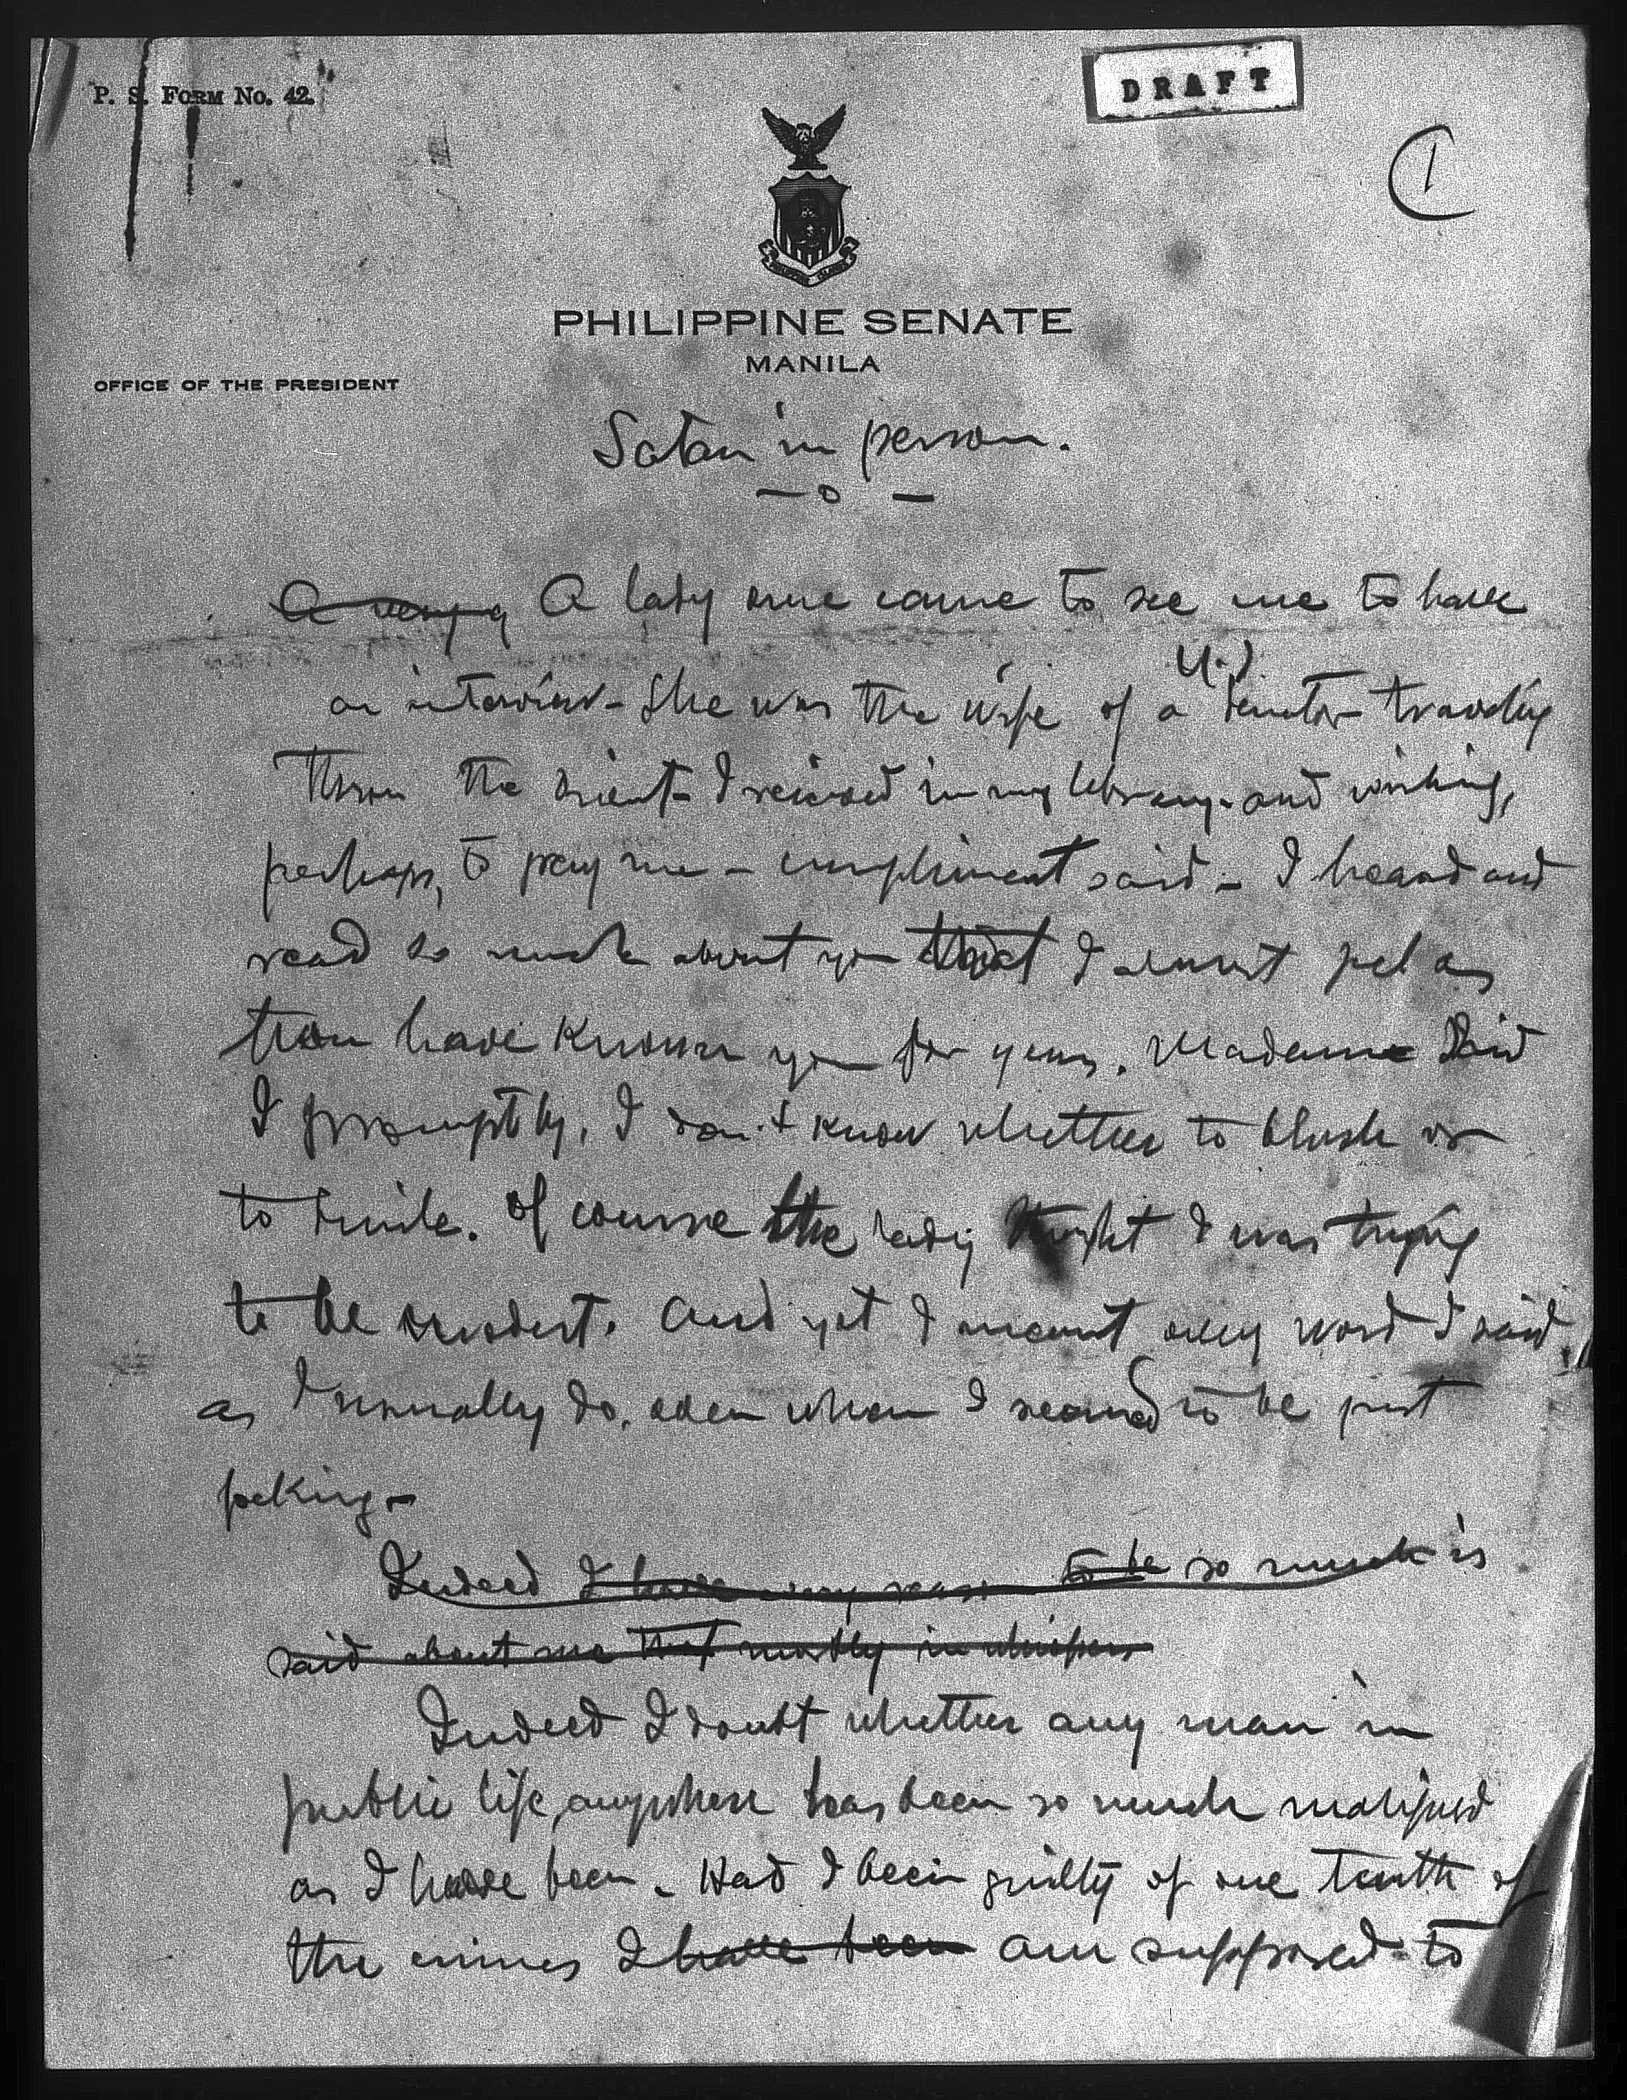 P. S. FORM No. 42.
DRAFT
1
PHILIPPINE SENATE
MANILA
OFFICE OF THE PRESIDENT
Satan in person.
— o —
A lady once came to see me to have
an interview - She was the wife of a U.S. Senator traveling
Thru the Orient - I received in my library - and wishing,
perhaps, to pay me a compliment said - I heard and
read so much about you that I almost feel as
tho have known you for years. Madame Said
I promptly, I don't know whether to blush or
to smile. Of course the lady thought I was trying
to be modest. And yet I meant every word I said,
as I usually do, even when I seemed to be just
joking -
Indeed I have many reason to be so much is
said about me that mostly in whispers
Indeed I doubt whether any man in
public life, anywhere has been so much maligned
as I have been. Had I been guilty of one tenth of
the crimes I have been am supposed to